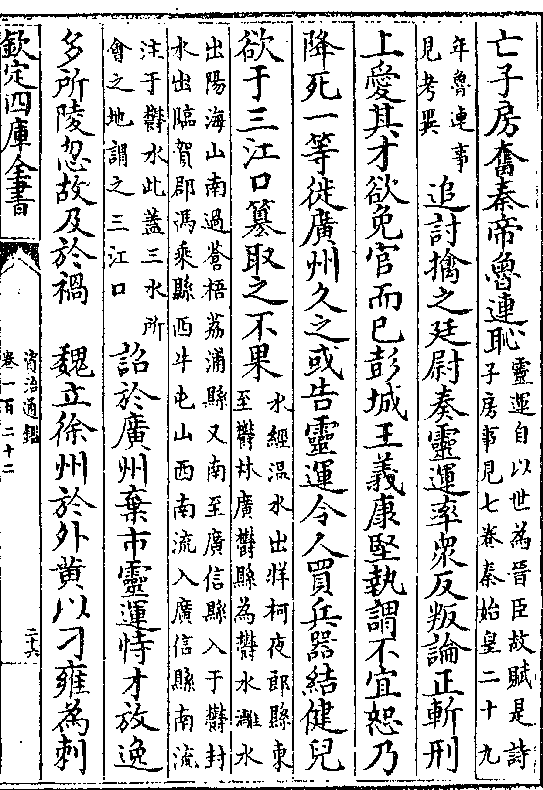 亡子房奮秦帝魯連恥
靈運自以世為晉臣故賦是詩
子房事見七卷秦始皇二十九
年魯連事
見考異
追討擒之廷尉奏靈運率衆反叛論正斬刑
上愛其才欲免官而已彭城王義康堅執謂不宜恕乃
降死一等徙廣州久之或告靈運令人買兵器結健兒
欲于三江口簒取之不果
水經温水出牂柯夜郎縣東
至欝林廣欝縣為欝水灕水
出陽海山南過蒼梧荔浦縣又南至廣信縣入于欝封
水出臨賀郡馮乘縣西牛屯山西南流入廣信縣南流
注于欝水此蓋三水所
會之地謂之三江口
詔於廣州棄市靈運恃才放逸
多所陵忽故及於禍　魏立徐州於外黄以刁雍為刺
欽定四庫全書
資治通鑑
卷一百二十二
二十六